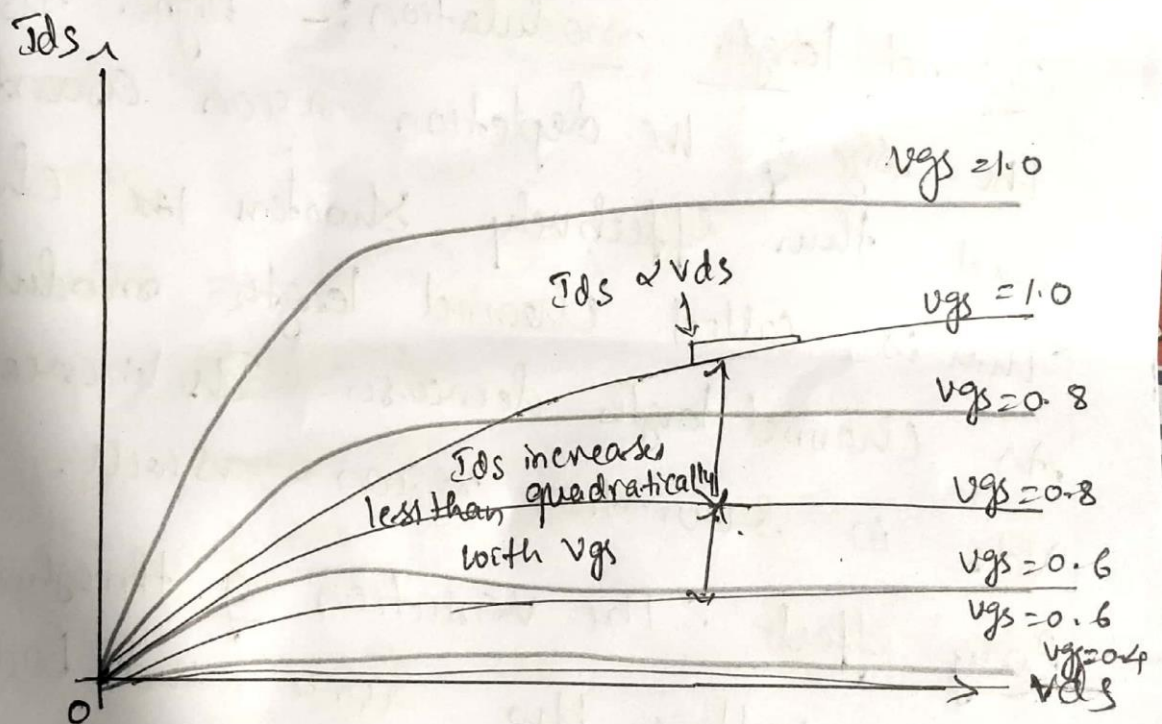 Ids
Vgs = 1.0
Ids α Vds
Vgs = 1.0
Vgs = 0.8
Ids increases
less than quadratically
with Vgs
Vgs = 0.8
Vgs = 0.6
Vgs = 0.6
Vgs = 0.4
Vds
0